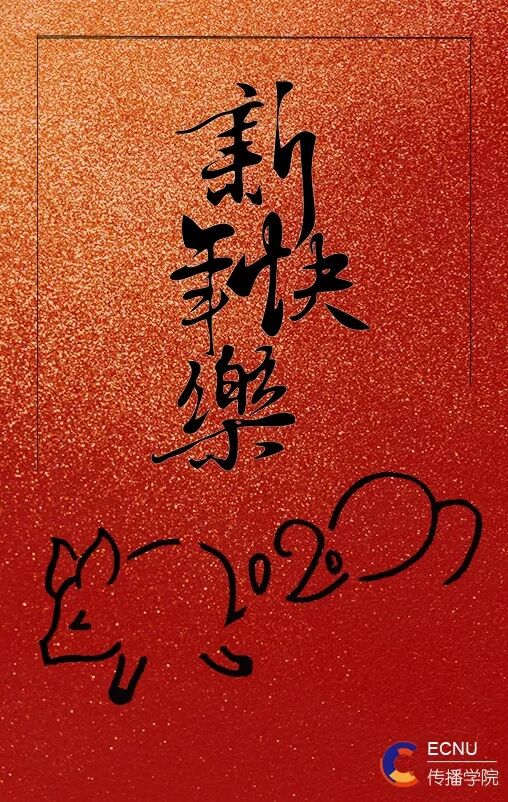 新
年快
樂
2020
ECNU
传播学院